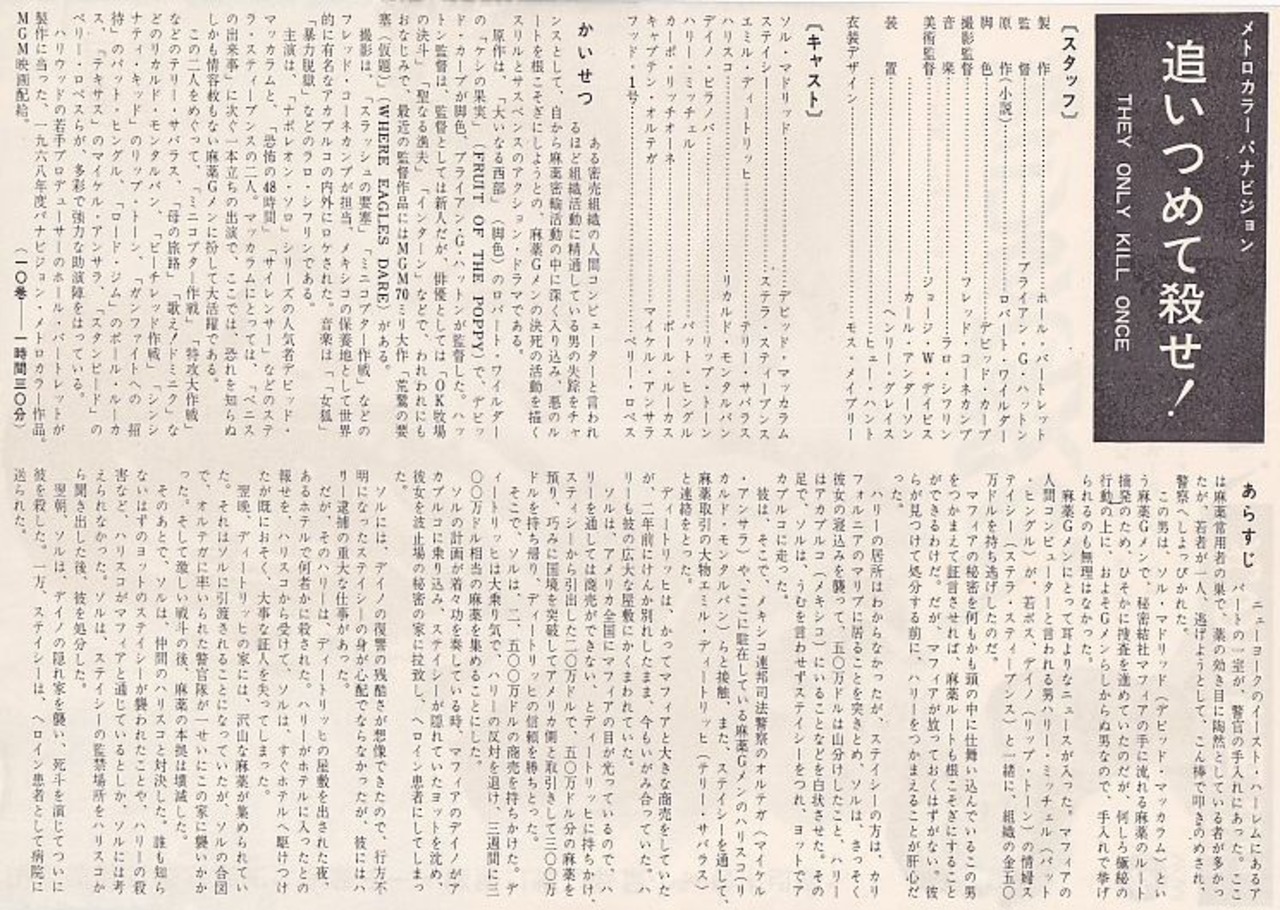 メトロカラー・パナビジョン
追いつめて殺せ!
THEY ONLY KILL ONCE
〔スタッフ〕
製作……ホール・バートレット
監督……ブライアン・G・ハットン
原作(小説)……ロバート・ワイルダー
脚色……デビッド・カープ
撮影監督……フレッド・コーネカンプ
音楽……ラロ・シフリン
美術監督……ジョージ・W・デイビス
カール・アンダーソン
装置……ヘンリー・グレイス
……ヒュー・ハント
衣装デザイン……モス・メイブリー
〔キャスト〕
ソル・マドリッド……デビッド・マッカラム
ステイシー……ステラ・スティーブンス
エミル・ディートリッヒ……テリー・サバラス
ハリスコ……リカルド・モンタルバン
デイノ・ピラノバ……リップ・トーン
ハリー・ミッチェル……パット・ヒングル
カーポ・リッチオーネ……ポール・ルーカス
キャプテン・オルテガ……マイケル・アンサラ
フッド・1号……ペリー・ロペス
かいせつ
ある密売組織の人間コンピューターと言われ
るほど組織活動に精通している男の失踪をチャ
ンスとして、自から麻薬密輸活動の中に深く入り込み、悪のル
ートを根こそぎにしようとの、麻薬Gメンの決死の活動を描く
スリルとサスペンスのアクション・ドラマである。
原作は、「大いなる西部」(脚色)のロバート・ワイルダー
の「ケシの果実」(FRUIT OF THE POPPY)で、デビッ
ド・カープが脚色、ブライアン・G・ハットンが監督した。ハッ
トン監督は、監督としては新人だが、俳優としては「OK牧場
の決斗」「聖なる漁夫」「インターン」などで、われわれにも
おなじみで、最近の監督作品にはMGM70ミリ大作「荒鷲の要
塞(仮題)」(WHERE EAGLES DARE)がある。
撮影は、「スラッシュの要塞」「ミニコプター作戦」などの
フレッド・コーネカンプが担当、メキシコの保養地として世界
的に有名なアカプルコの内外にロケされた。音楽は「女狐」
「暴力脱獄」などのラロ・シフリンである。
主演は、「ナポレオン・ソロ」シリーズの人気者デビッド・
マッカラムと、「恐怖の48時間」「サイレンサー」などのステ
ラ・スティーブンスの二人。マッカラムにとっては、「ベニス
の出来事」に次ぐ一本立ちの出演で、ここでは、恐れを知らぬ
しかも情容赦もない麻薬Gメンに扮して大活躍である。
この二人をめぐって、「ミニコプター作戦」「特攻大作戦」
などのテリー・サバラス、「母の旅路」「歌え!ドミニク」な
どのリカルド・モンタルバン、「ビーチレッド作戦」「シンシ
ナティ・キッド」のリップ・トーン、「ガンファイトへの招
待」のパット・ヒングル、「ロード・ジム」のポール・ルーカ
ス、「テキサス」のマイケル・アンサラ、「スタンピード」の
ペリー・ロペスらが、多彩で強力な助演陣をはっている。
ハリウッドの若手プロデューサーのホール・バートレットが
製作に当った、一九六八年度パナビジョン・メトロカラー作品。
MGM映画配給。
(一〇巻――一時間三〇分)
あらすじ
ニューヨークのイースト・ハーレムにあるア
パートの一室が、警官の手入れにあった。ここ
は麻薬常用者の巣で、薬の効き目に陶然としている者が多かっ
たが、若者が一人、逃げようとして、こん棒で叩きのめされ、
警察へしょっぴかれた。
この男は、ソル・マドリッド(デビッド・マッカラム)とい
う麻薬Gメンで、秘密結社マフィアの手に流れる麻薬のルート
摘発のため、ひそかに捜査を進めていたのだが、何しろ極秘の
行動の上に、およそGメンらしからぬ男なので、手入れで挙げ
られるのも無理はなかった。
麻薬Gメンにとって耳よりなニュースが入った。マフィアの
人間コンピューターと言われる男ハリー・ミッチェル(パット
・ヒングル)が、若ボス、デイノ(リップ・トーン)の情婦ス
テイシー(ステラ・スティーブンス)と一緒に、組織の金五〇
万ドルを持ち逃げしたのだ。
マフィアの秘密を何もかも頭の中に仕舞い込んでいるこの男
をつかまえて証言させれば、麻薬ルートも根こそぎにすること
ができるわけだ。だが、マフィアが放っておくはずがない。彼
らが見つけて処分する前に、ハリーをつかまえることが肝心だ
った。
ハリーの居所はわからなかったが、ステイシーの方は、カリ
フォルニアのマリブに居ることを突きとめ、ソルは、さっそく
彼女の寝込みを襲って、五〇万ドルは山分けしたこと、ハリー
はアカプルコ(メキシコ)にいることなどを白状させた。その
足で、ソルは、うむを言わせずステイシーをつれ、ヨットでア
カプルコに走った。
彼は、そこで、メキシコ連邦司法警察のオルテガ(マイケル
・アンサラ)や、ここに駐在している麻薬Gメンのハリスコ(リ
カルド・モンタルバン)らと接触、また、ステイシーを通して、
麻薬取引の大物エミル・ディートリッヒ(テリー・サバラス)
と連絡をとった。
ディートリッヒは、かってマフィアと大きな商売をしていた
が、二年前にけんか別れしたまま、今もいがみ合っていた。ハ
リーも彼の広大な屋敷にかくまわれていた。
ソルは、アメリカ全国にマフィアの目が光っているので、ハ
リーを通しては商売ができない、とディートリッヒに持ちかけ、
スティシーから引出した二〇万ドルで、五〇万ドル分の麻薬を
預り、巧みに国境を突破してアメリカ側と取引きして三〇〇万
ドルを持ち帰り、ディートリッヒの信頼を勝ちとった。
そこで、ソルは、二、五〇〇万ドルの商売を持ちかけた。デ
ィートリッヒは大乗り気で、ハリーの反対を退け、三週間に三
〇〇万ドル相当の麻薬を集めることにした。
ソルの計画が着々功を奏している時、マフィアのデイノがア
カプルコに乗り込み、ステイシーが隠れていたヨットを沈め、
彼女を波止場の秘密の家に拉致し、ヘロイン患者にしてしまっ
た。
ソルには、デイノの復讐の残酷さが想像できたので、行方不
明になったステイシーの身が心配でならなかったが、彼にはハ
リー逮捕の重大な仕事があった。
だが、そのハリーは、ディートリッヒの屋敷を出された夜、
あるホテルで何者かに殺された。ハリーがホテルに入ったとの
報せを、ハリスコから受けて、ソルは、すぐホテルへ駆けつけ
たが既におそく、大事な証人を失ってしまった。
翌晩、ディートリッヒの家には、沢山な麻薬が集められてい
た。それはソルに引渡されることになっていたが、ソルの合図
で、オルテガに率いられた警官隊が一せいにこの家に襲いかか
った。そして激しい戦斗の後、麻薬の本拠は壊滅した。
そのあとで、ソルは、仲間のハリスコと対決した。誰も知ら
ないはずのヨットのステイシーが襲われたことや、ハリーの殺
害など、ハリスコがマフィアと通じているとしか、ソルには考
えられなかった。ソルは、ステイシーの監禁場所をハリスコか
ら聞き出した後、彼を処分した。
翌朝、ソルは、デイノの隠れ家を襲い、死斗を演じてついに
彼を殺した。一方、ステイシーは、ヘロイン患者として病院に
送られた。